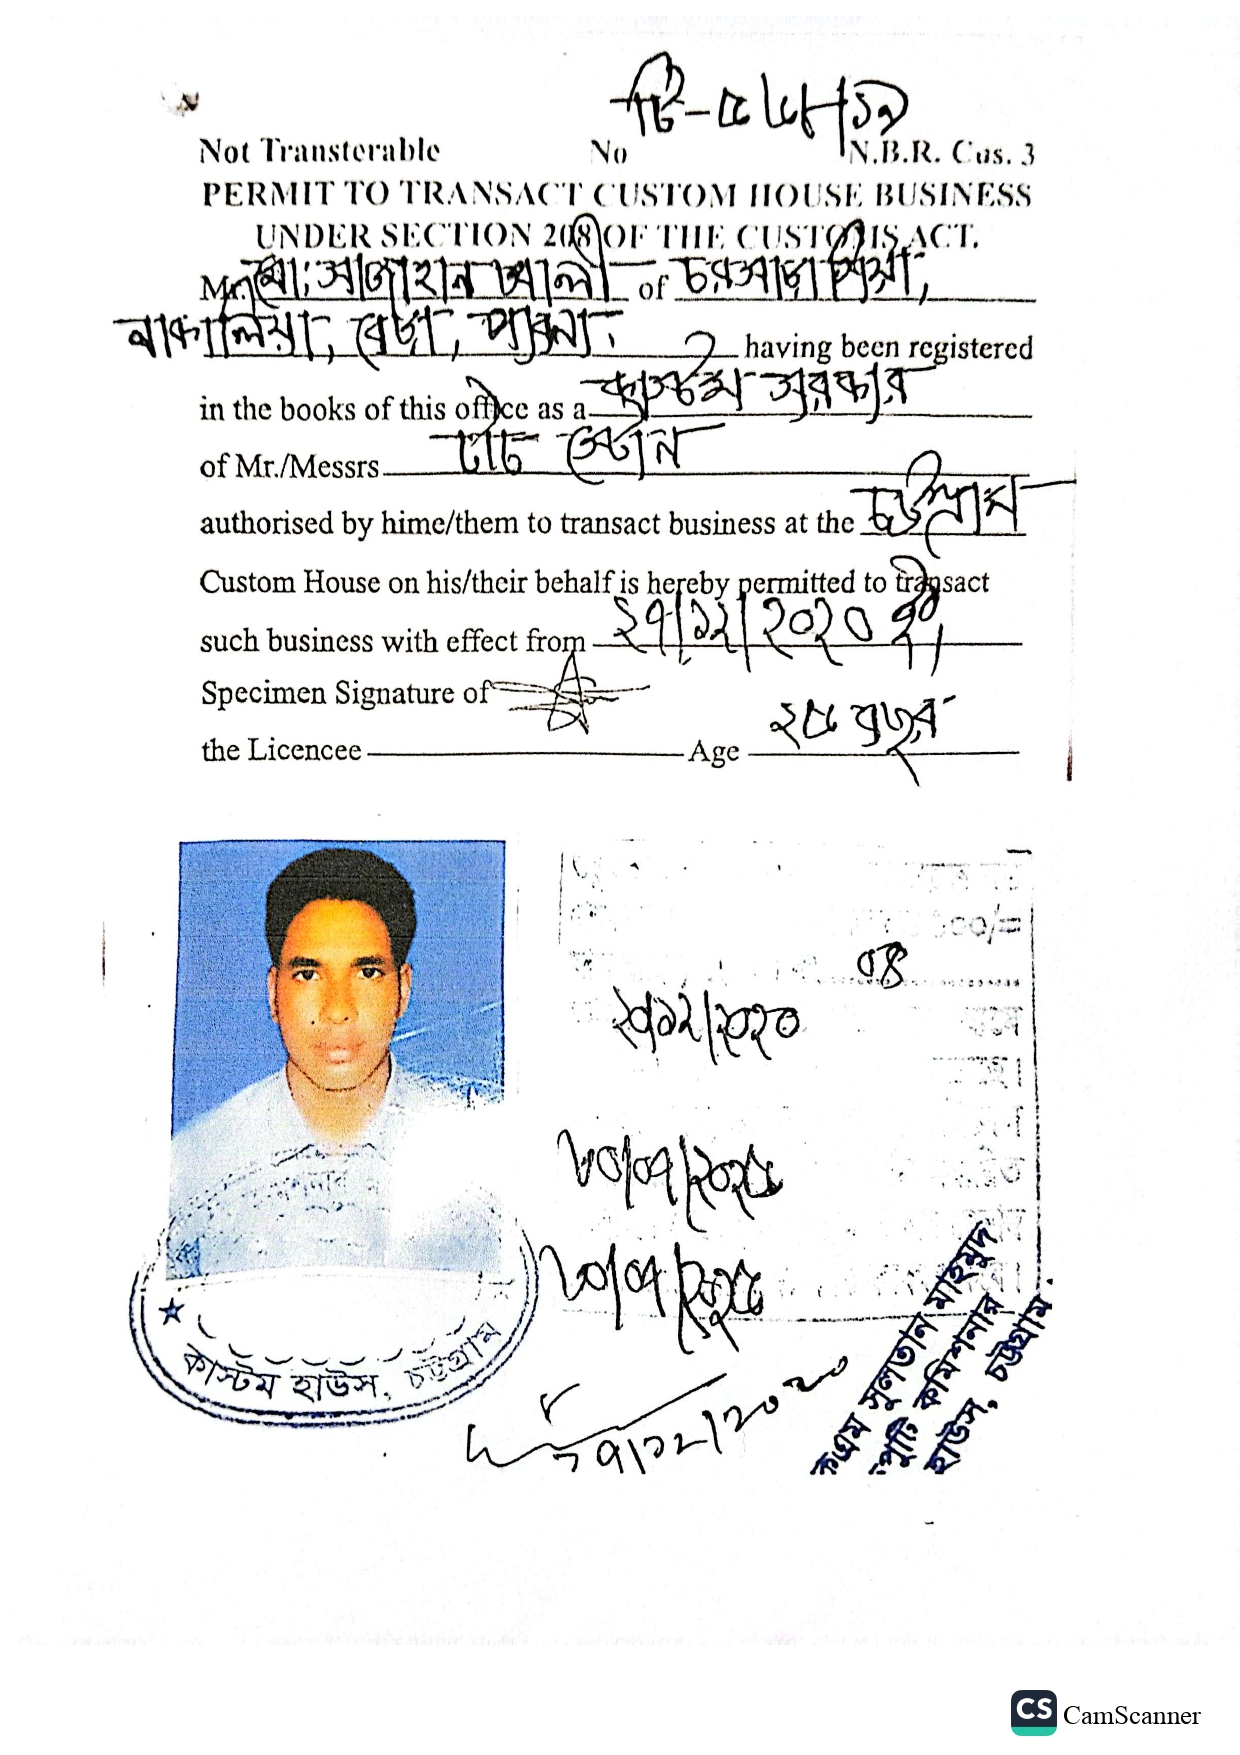 Not Transterable No N.B.R. Cus. 3
PERMIT TO TRANSACT CUSTOM HOUSE BUSINESS
UNDER SECTION 208 OF THE CUSTOMS ACT.
Mr. মো: সাজাহান আলী of চরসাড়াশিয়া,
নাকালিয়া, বেড়া, পাবনা। having been registered
in the books of this office as a কাস্টম সরকার
of Mr./Messrs
authorised by hime/them to transact business at the চট্টগ্রাম
Custom House on his/their behalf is hereby permitted to transact
such business with effect from ২৭/১২/২০২০ ইং
Specimen Signature of
the Licencee Age ২৫ বছর
০৪
২০/১২/২০২০
৩০/০৭/২০২৫
৩০/০৭/২০২৫
কাস্টম হাউস, চট্টগ্রাম
সুলতান মাহমুদ
কমিশনার
হাউস, চট্টগ্রাম.
CS CamScanner